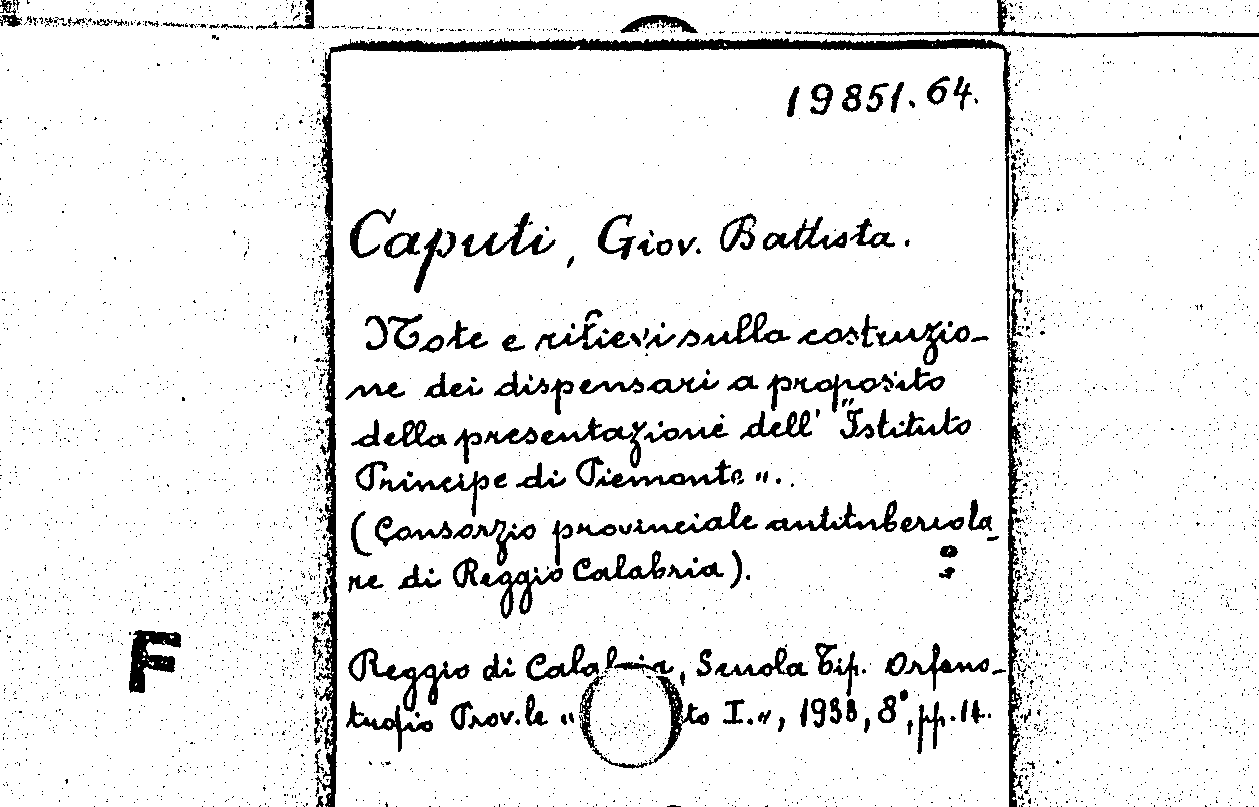 19851.64.
Caputi, Giov. Battista.
Note e rilievi sulla costruzio-
ne dei dispensari a proposito
della presentazione dell' "Istituto
Principe di Piemonte".
(Consorzio provinciale antitubercola-
re di Reggio Calabria).
F
Reggio di Calabria, Scuola Tip. Orfano-
trofio Prov.le " to I.", 1933, 8°, pp. 14.